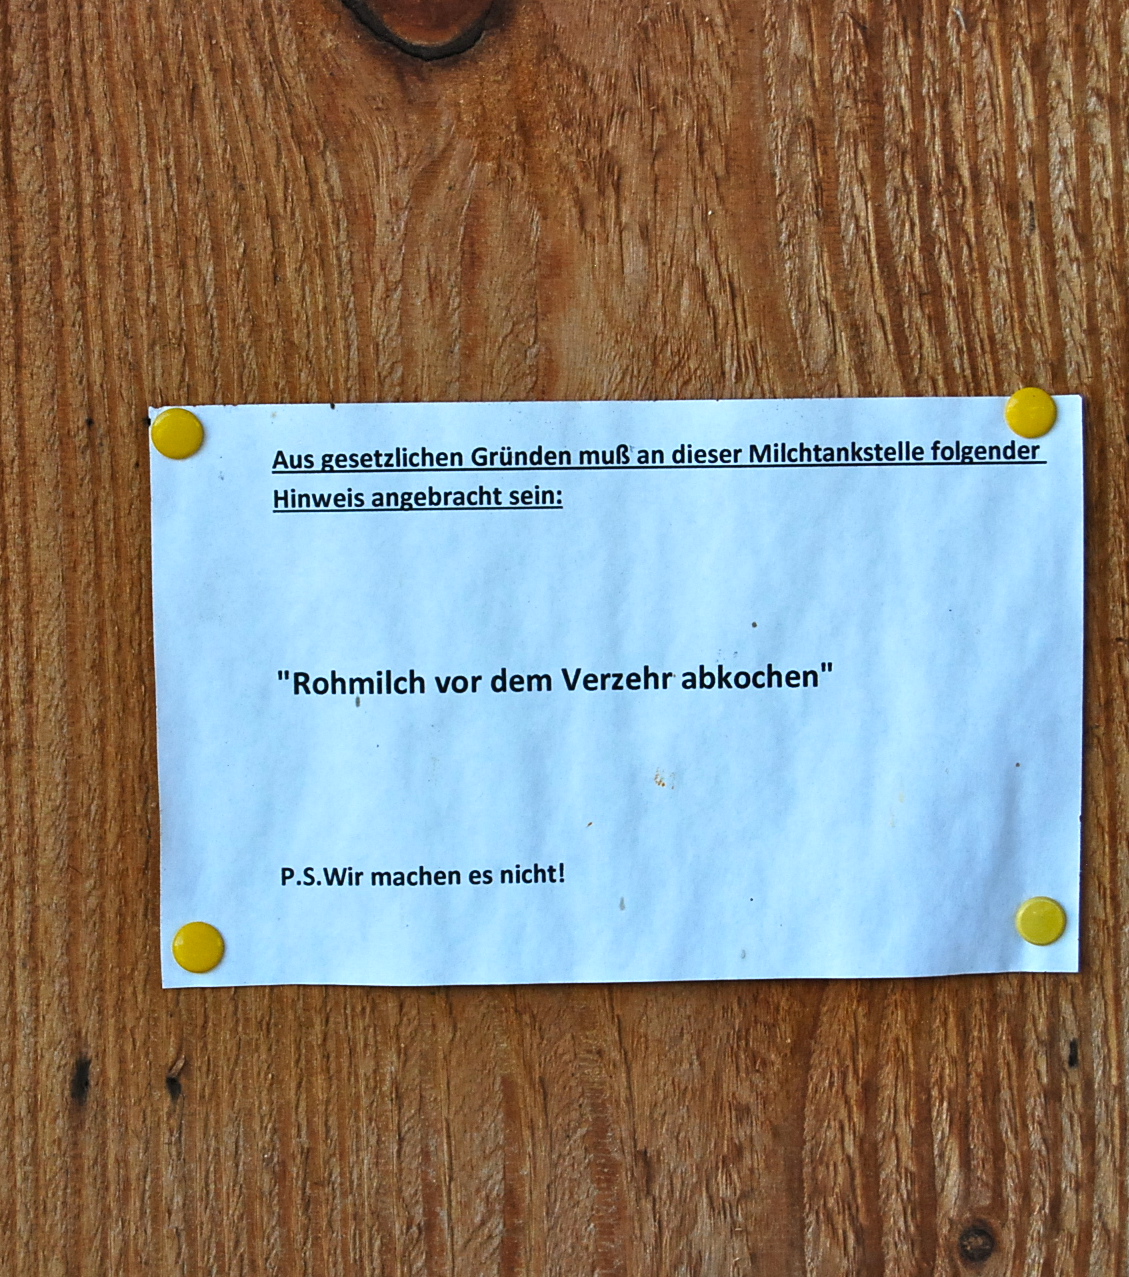 Aus gesetzlichen Gründen muß an dieser Milchtankstelle folgender
Hinweis angebracht sein:
"Rohmilch vor dem Verzehr abkochen"
P.S.Wir machen es nicht!